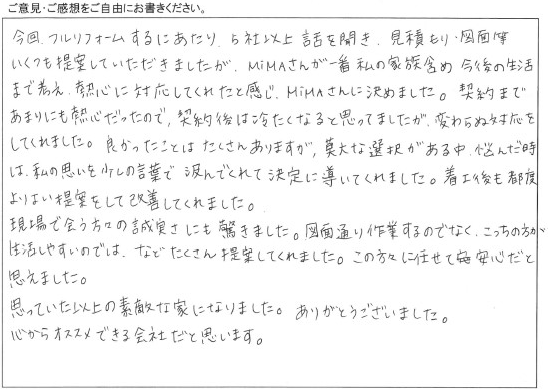 ご意見・ご感想をご自由にお書きください。
今回、フルリフォームするにあたり、5社以上話を聞き、見積もり・図面等
いくつも提案していただきましたが、MiMAさんが一番私の家族含め今後の生活
まで考え、熱心に対応してくれたと感じ、MiMAさんに決めました。契約まで
あまりにも熱心だったので、契約後は冷たくなると思ってましたが、変わらぬ対応を
してくれました。良かったことはたくさんありますが、莫大な選択がある中、悩んだ時
は、私の思いを少しの言葉で汲んでくれて決定に導いてくれました。着工後も都度
よりよい提案をして改善してくれました。
現場で会う方々の誠実さにも驚きました。図面通り作業するのでなく、こっちの方が
生活しやすいのでは、などたくさん提案してくれました。この方々に任せて安心だと
思えました。
思っていた以上の素敵な家になりました。ありがとうございました。
心からオススメできる会社だと思います。